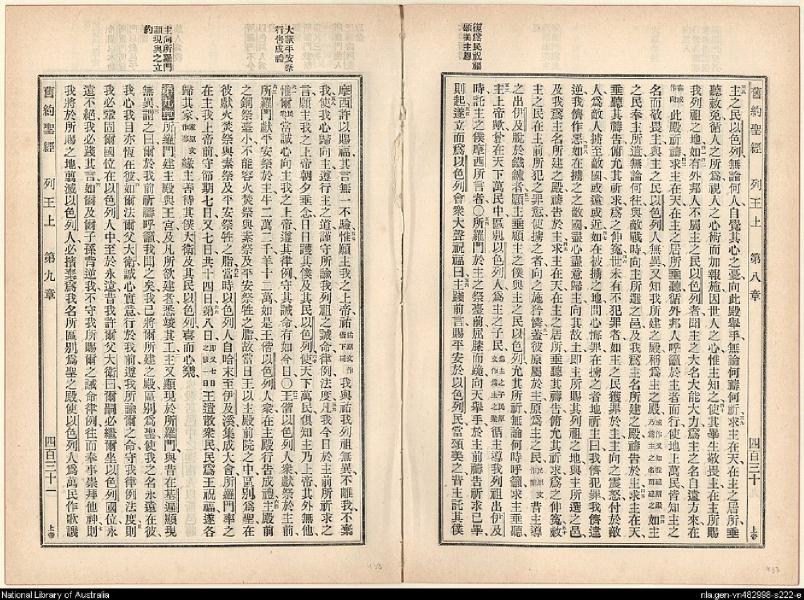 復爲民祝福
頌美主恩
舊約聖經 列王上 第八章 四百三十 上帝
主之民以色列無論何人自覺其心之憂向此殿舉手無論何禱何祈求主在天在主之居所垂
聽赦免循人之所爲視人之心術而加報施因世人之心惟主知之使其畢生敬畏主在主所賜
我列祖之地如有外邦人不屬主之民以色列者聞主之大名大能大力爲主之名自遠方來在
此殿祈禱求主在天在主之居所垂聽循外邦人呼籲於主者而行使地上萬民皆知主之
名而敬畏主與主之民以色列人無異又知我所建之殿稱爲主之殿 如主
之民奉主所遣無論何往與敵戰時向主所選之邑及我爲主名所建之殿禱告於主求主在天
垂聽其禱告俯允其祈求爲之伸冤世未有不犯罪者如主之民獲罪於主主向之震怒付於敵
人爲敵人擄至敵國或遠或近如在被擄之地問心悔罪在擄之者地祈主曰我儕犯罪我儕違
逆我儕作惡如在擄之之敵國盡心盡意歸主向其故土即主所賜其列祖之地與主所選之邑
及我爲主名所建之殿禱告於主求主在天在主之居所垂聽其禱告俯允其祈求爲之伸冤赦
主之民在主前所犯之罪愆使擄之者向之施矜恤蓋彼原屬於主原爲主之民 昔主導
之出伊及脫於鐵爐者願主垂顧主之僕與主之民以色列允其所祈無論何時呼籲求主垂聽
主上帝歟曾在天下萬民中區別以色列人爲主之子民 循主導我列祖出伊及
時託主之僕摩西所言者○所羅門於主之祭臺前屈膝而跪向天舉手於主前禱告祈求已畢
則起遂立而爲以色列會衆大聲祝福曰主踐前言賜平安於以色列民當頌美之昔主託其僕
大獻平安祭
行告成禮
主向所羅門
顯現與之立
約
摩西許以賜福其言無一不驗惟願主我之上帝祐 我與祐我列祖無異不離我不棄
我使我心歸向主遵行主之道謹守所諭我列祖之誡命律例法度凡我今日於主前所祈求之
言願主我之上帝朝夕垂念日日護其僕及其民以色列使天下萬民俱知主乃上帝其外無他
惟爾 當誠心向主我之上帝遵其律例守其誡命有如今日○王偕以色列人衆獻祭於主前
所羅門獻平安祭於主牛二萬二千羊十二萬如是王偕以色列人衆在主殿行告成禮主殿前
之銅祭臺小不能容火焚祭與素祭及平安祭牲之脂故當日王以主殿前院之中區別爲聖在
彼獻火焚祭與素祭及平安祭牲之脂當時以色列人自哈末至伊及溪集成大會所羅門率之
在主我上帝前守節期七日又七日共十四日第八日 王遣散衆民民爲王祝福遂各
歸其家 緣主善待其僕大衛及其民以色列喜而心樂
第九章 所羅門建主殿與王宮及凡所欲建者悉竣其工主又顯現於所羅門與昔在基遍顯現
無異謂之曰爾於我前祈禱呼籲我聞之矣我已將爾所建之殿區別爲聖歸我之名永遠在彼
我心我目亦恆在彼如爾法爾父大衛誠心實意行於我前遵我所諭爾之命守我律例法度則
我必鞏固爾國位在以色列人中至於永遠昔我許爾父大衛曰爾嗣必繼爾坐以色列國位永
遠不絕我必踐其言如爾及爾子孫背逆我不守我所賜爾之誡命律例往而奉事崇拜他神則
我將於所賜之地翦滅以色列人必擯棄爲我名所區別爲聖之殿使以色列人爲萬民作歌譏
舊約聖經 列王上 第九章 四百三十一 上帝
National Library of Australia
nla.gen-vn482998-s222-e